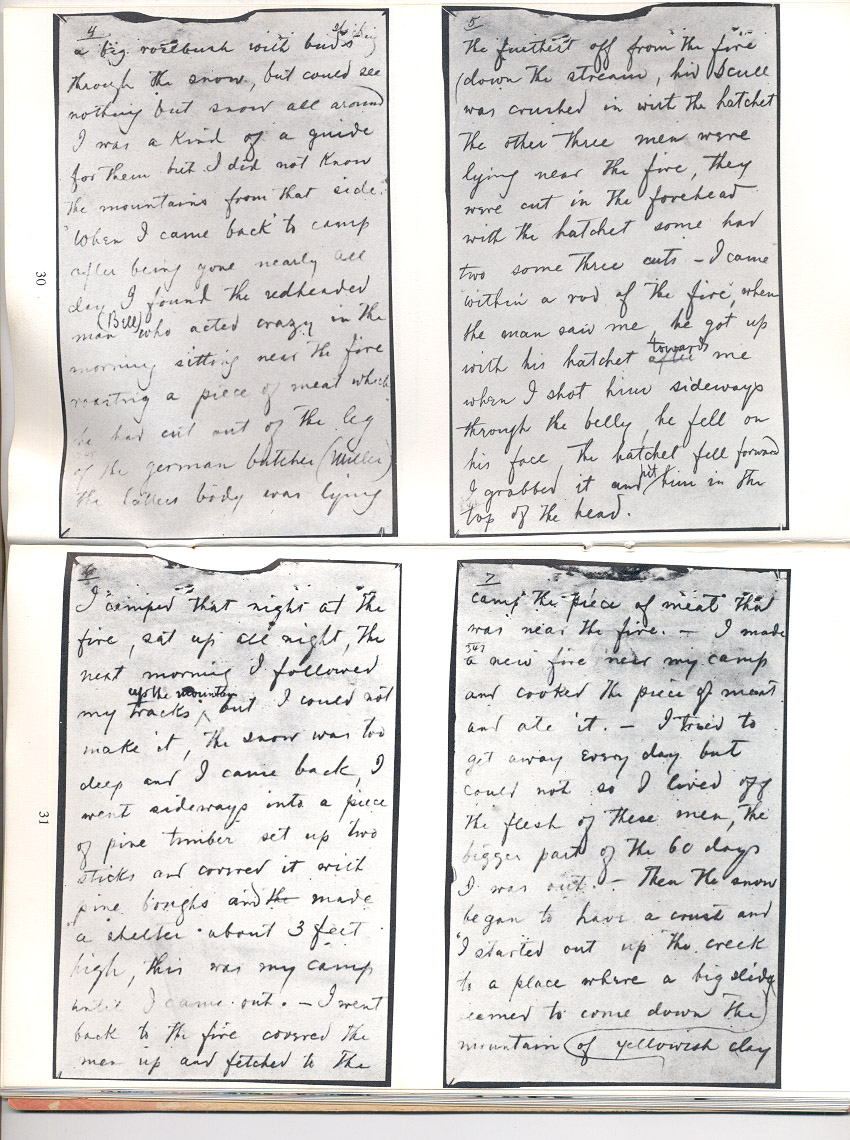 30
4
a big rosebush with buds shining
through the snow, but could see
nothing but snow all around
I was a Kind of a guide
for them but I did not Know
the mountains from that side.
When I came back to camp
after being gone nearly all
day I found the redheaded
man (Bell) who acted crazy in the
morning sitting near the fire
roasting a piece of meat which
he had cut out of the leg
of the german butcher (Miller)
the latters body was lying
5
the furthest off from the fire
(down the stream, his Scull
was crushed in with the hatchet
the other three men were
lying near the fire, they
were cut in the forehead
with the hatchet some had
two some three cuts – I came
within a rod of the fire, when
the man saw me, he got up
with his hatchet towards me
when I shot him sideways
through the belly he fell on
his face, the hatchet fell forward
I grabbed it and hit him in the
top of the head.
31
6
I camped that night at the
fire, sat up all night, the
next morning I followed
my tracks up the mountain, but I could not
make it, the snow was too
deep and I came back, I
went sideways into a piece
of pine timber set up two
sticks and covered it with
pine boughs and the made
a shelter about 3 feet
high, this was my camp
until I came out. – I went
back to the fire covered the
men up and fetched to the
7
camp the piece of meat that
was near the fire. – I made
a new fire near my camp
and cooked the piece of meat
and ate it. – I tried to
get away every day but
could not so I lived off
the flesh of these men, the
bigger part of the 60 days
I was out. – Then the snow
began to have a crust and
I started out up the creek
to a place where a big slide
seemed to come down the
mountain of yellowish clay